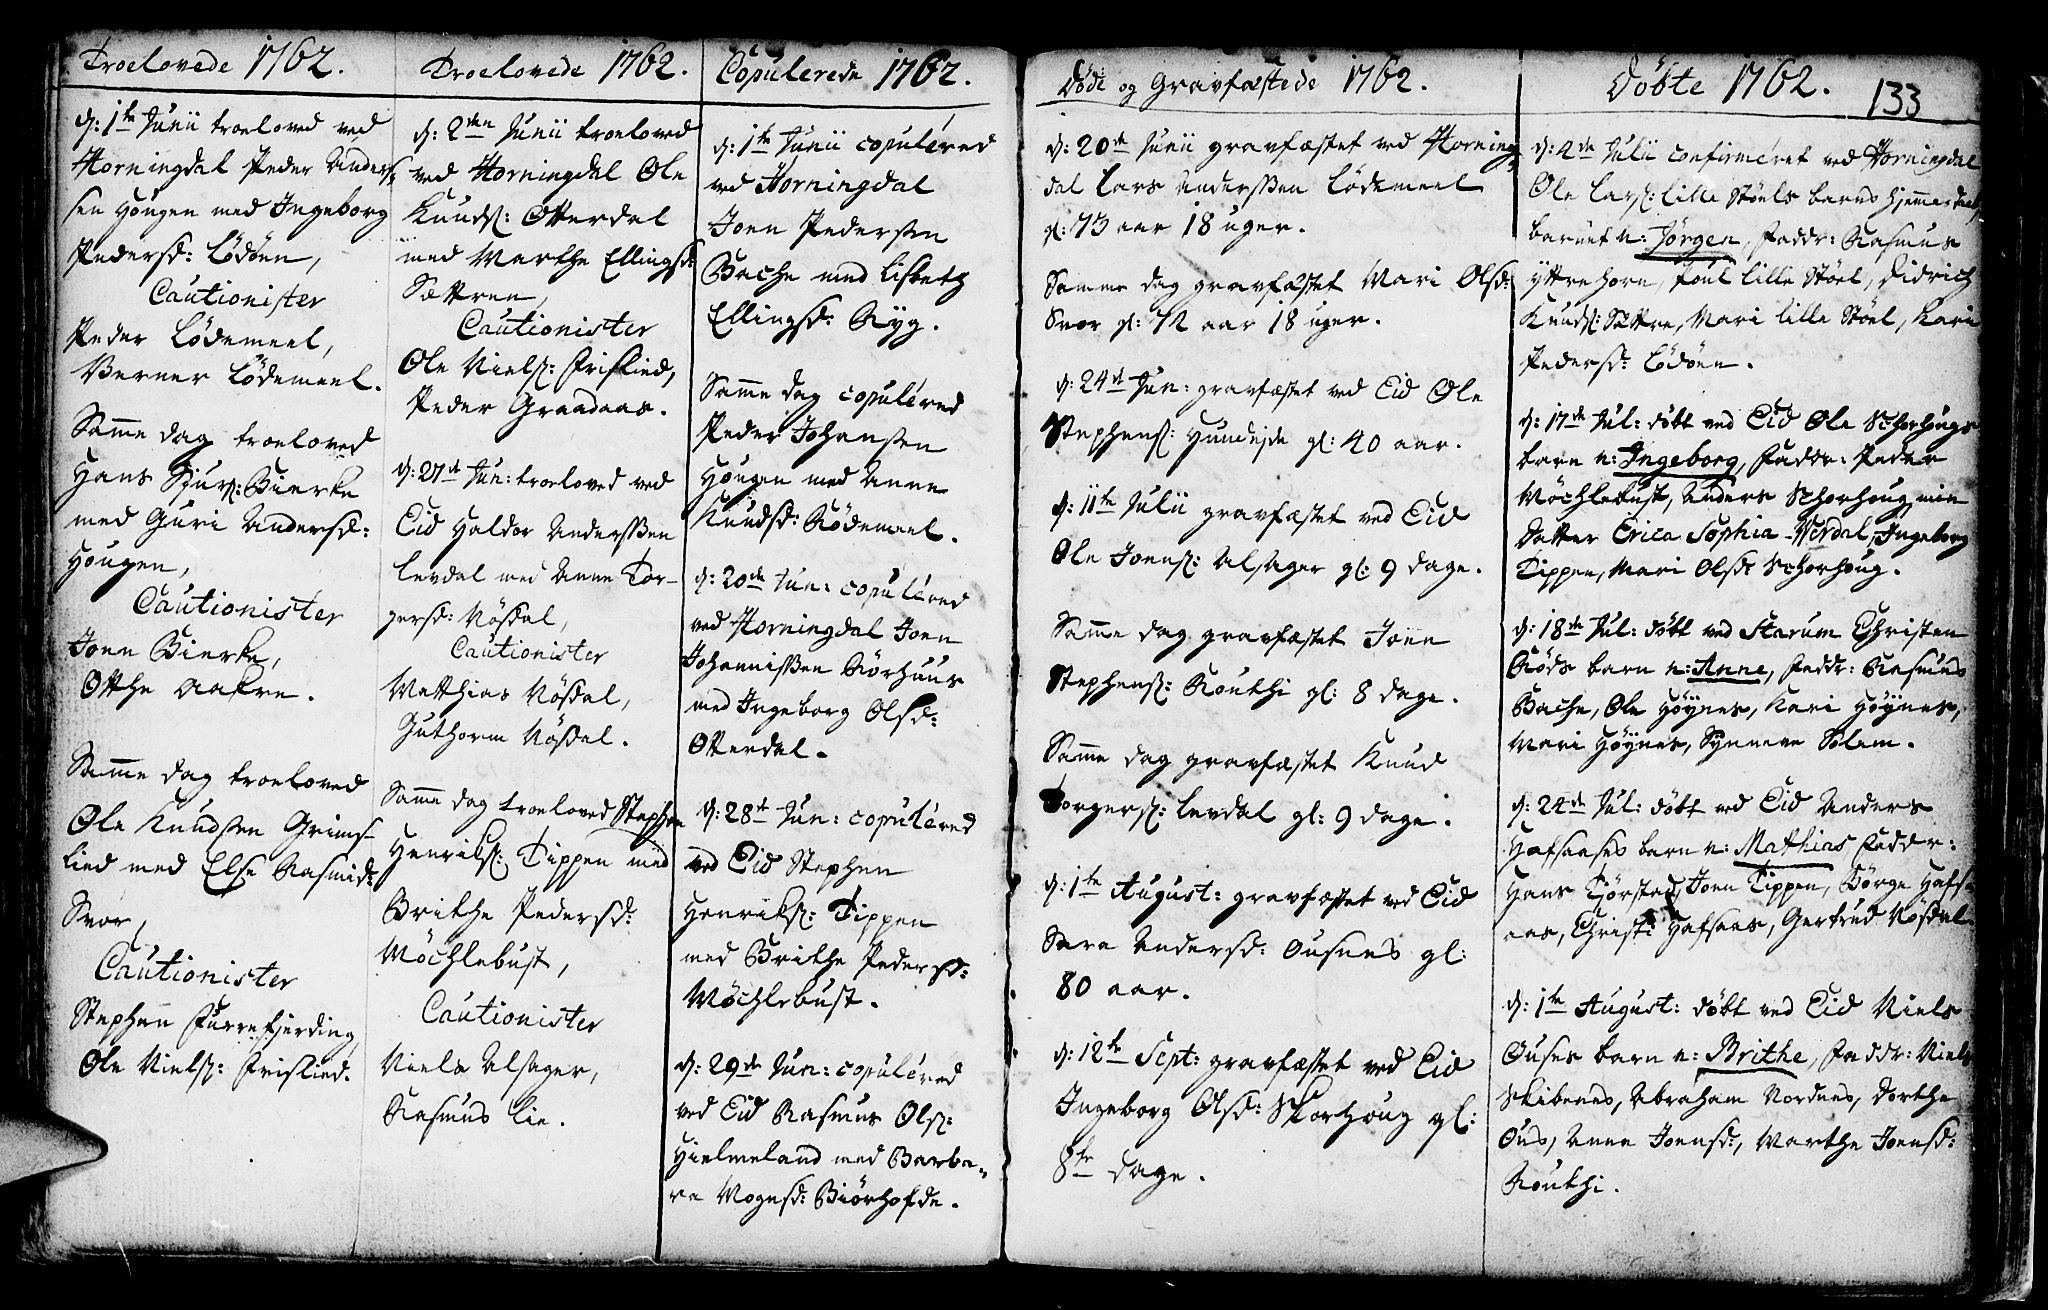 Troelovede 1762.
d: 1te Junii troeloved ved
Horningdal Peder Anders-
sen Hougen med Ingeborg
Pedersd: Lödöen,
Cautionister
Peder Lödemeel,
Berner Lödemeel.
Samme dag troeloved
Hans Sjurs: Bierke
med Guri Andersd:
Hougen,
Cautionister
Joen Bierke,
Otthe Aakre.
Samme dag troeloved
Ole Knudssen Grims-
lied med Else Rasmusd:
Svor,
Cautionister
Stephen Furrefjerding
Ole Niels: Frislied.
Troelovede 1762.
d: 2den Junii troeloved
ved Horningdal Ole
Knuds: Otterdal
med Marthe Ellingsd:
Sættren,
Cautionister
Ole Niels: Frislied,
Peder Graadaas.
d: 27de Jun: troeloved ved
Eid Haldor Anderssen
Levdal med Anne Tor-
gersd: Nösdal,
Cautionister
Matthias Nösdal,
Guthorm Nösdal.
Samme dag troeloved Stephen
Henriks: Tippen med
Brithe Pedersd:
Möchlebust,
Cautionister
Niels Alsager,
Rasmus Lie.
Copulerede 1762.
d: 1te Junii copuléred
ved Horningdal
Joen Pedersen
Bache med Lisbeth
Ellingsd: Ryg.
Samme dag copuléred
Peder Johansen
Hougen med Anne
Knudsd: Rödemeel.
d: 20de Jun: copuléred
ved Horningdal Joen
Johannissen Rörhuus
med Ingeborg Olsd:
Otterdal.
d: 28de Jun: copuléred
ved Eid Stephen
Henriks: Tippen
med Brithe Pedersd:
Möchlebust.
d: 29de Jun: copuléred
ved Eid Rasmus Ols:
Hielmeland med Barba-
ra Mognsd: Biörhofde.
Döde og Gravfæstede 1762.
d: 20de Junii gravfæstet ved Horning-
dal Lars Anderssen Lödemeel
gl: 73 aar 18 uger.
Samme dag gravfæstet Mari Olsd:
Svor gl: 72 aar 18 uger.
d: 24de Jun: gravfæstet ved Eid Ole
Stephens: Hundejde gl: 40 aar.
d: 11te Julii gravfæstet ved Eid
Ole Joens: Alsager gl: 9 dage.
Samme dag gravfæstet Joen
Stephens: Routhi gl: 8 dage.
Samme dag gravfæstet Knud
Torgers: Levdal gl: 9 dage.
d: 1te August: gravfæstet ved Eid
Sara Andersd: Ousnes gl:
80 aar.
d: 12te Sept: gravfæstet ved Eid
Ingeborg Olsd: Skorhoug gl:
8te dage.
Döbte 1762. 133
d: 4de Julii confirmeret ved Horningdal
Ole Lars: Lille Stöels barns hjemmedaab,
barnet n: Jörgen, Faddr: Rasmus
Yttrehorn, Poul Lille Stöel, Didrich
Knuds: Sættre, Mari Lille Stöel, Kari
Pedersd: Lödöen.
d: 17de Jul: döbt ved Eid Ole Schorhougs
barn n: Ingeborg, Faddr: Peder
Möchlebust, Anders Schorhoug, min
Datter Erica Sophia Werdal, Ingeborg
Tippen, Mari Olsd: Schorhoug.
d: 18de Jul: döbt ved Starum Christen
Röds barn n: Anne, Faddr: Rasmus
Bache, Ole Höynes, Kari Höynes,
Mari Höynes, Synneve Solem.
d: 24de Jul: döbt ved Eid Anders
Hafsaases barn n: Mathias, Faddr:
Hans Tjörstad, Joen Tippen, Börge Hafs-
aas, Christi Hafsaas, Gertrud Nösdal
d: 1te August: döbt ved Eid Niels
Ouses barn n: Brithe, Faddr: Niels
Skibenes, Abraham Nordnes, Dorthe
Ous, Anne Joensd:, Marthe Joensd:
Routhi.